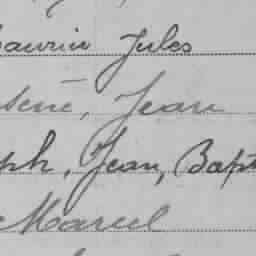 Maurice Jules
sène, Jean
ph, Jean, Bapt
Marcel